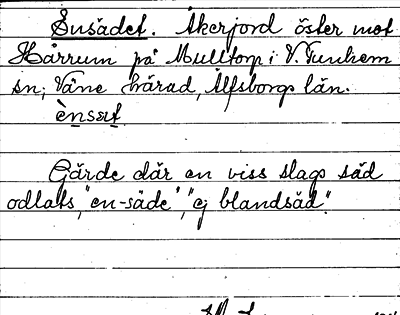 Ensädet. Åkerjord öster mot
Hårrum på Mulltorp i V. Tunhem
sn; Väne härad, Älfsborgs län.
Gärde där en viss slags säd
odlats, "en-säde", "ej blandsäd".